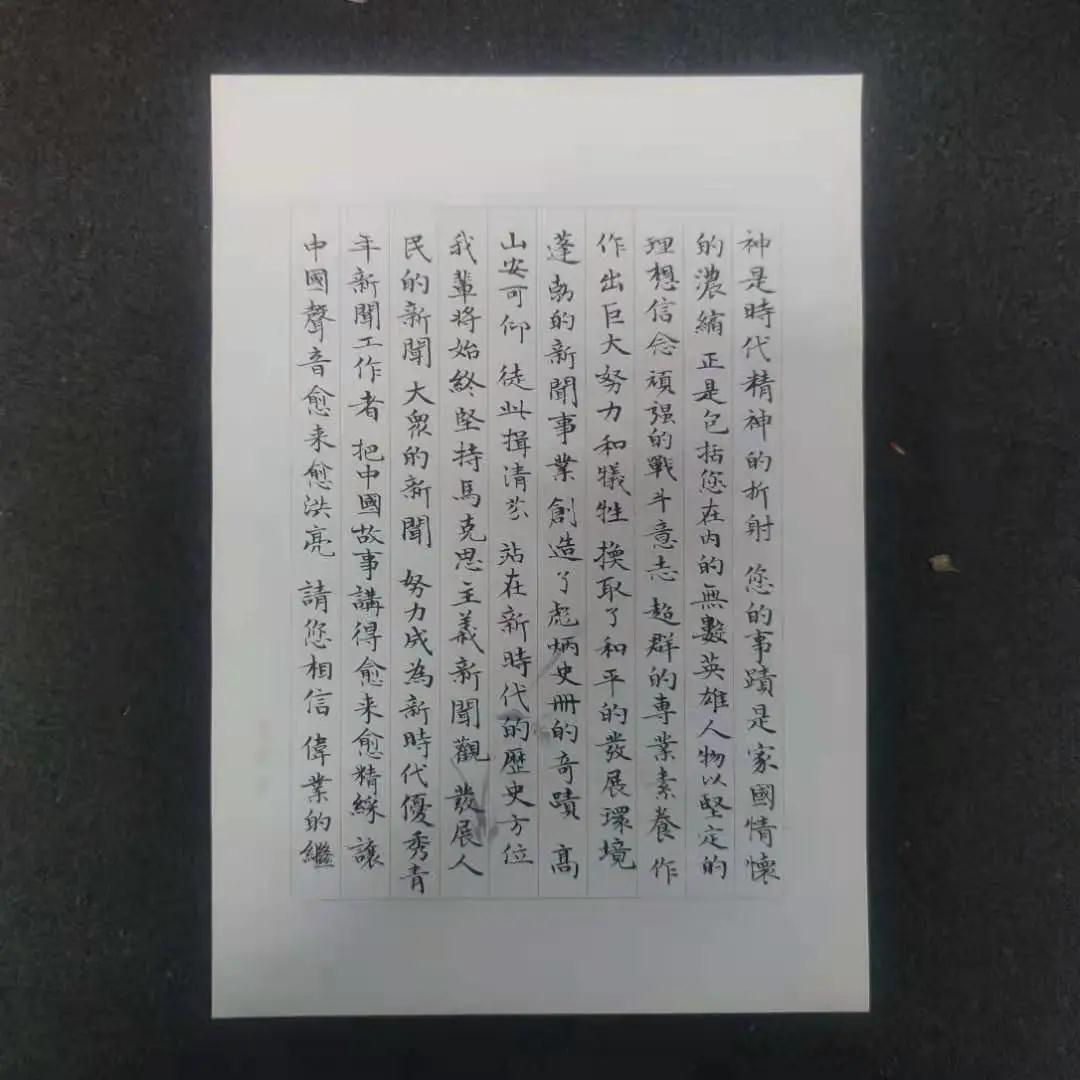 神是時代精神的折射 您的事蹟是家國情懷
的濃縮 正是包括您在内的無數英雄人物以堅定的
理想信念頑强的戰斗意志 超群的專業素養 作
作出巨大努力和犧牲 換取了和平的發展環境
蓬勃的新聞事業創造了彪炳史册的奇蹟 高
山安可仰 徒此揖清芬 站在新時代的歷史方位
我輩將始終堅持馬克思主義新聞觀 發展人
民的新聞 大衆的新聞 努力成為新時代優秀青
年新聞工作者 把中國故事講得愈来愈精綵 讓
中國聲音愈来愈洪亮 請您相信 偉業的繼